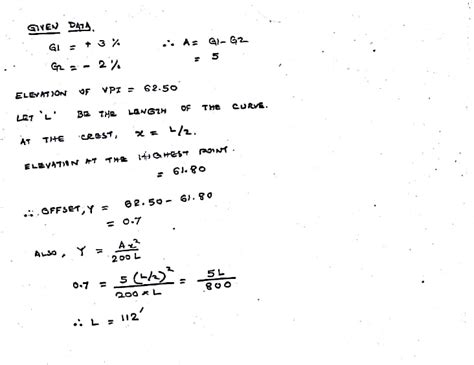 GIVEN DATA.
G1 = + 3 % ∴ A = G1 - G2
G2 = - 2 % = 5
ELEVATION OF VPI = 62.50
LET 'L' BE THE LENGTH OF THE CURVE.
AT THE CREST, x = L/2.
ELEVATION AT THE HIGHEST POINT.
= 61.80
∴ OFFSET, Y = 62.50 - 61.80
= 0.7
ALSO, Y = Ax²/200L
0.7 = 5(L/2)²/200×L = 5L/800
∴ L = 112'